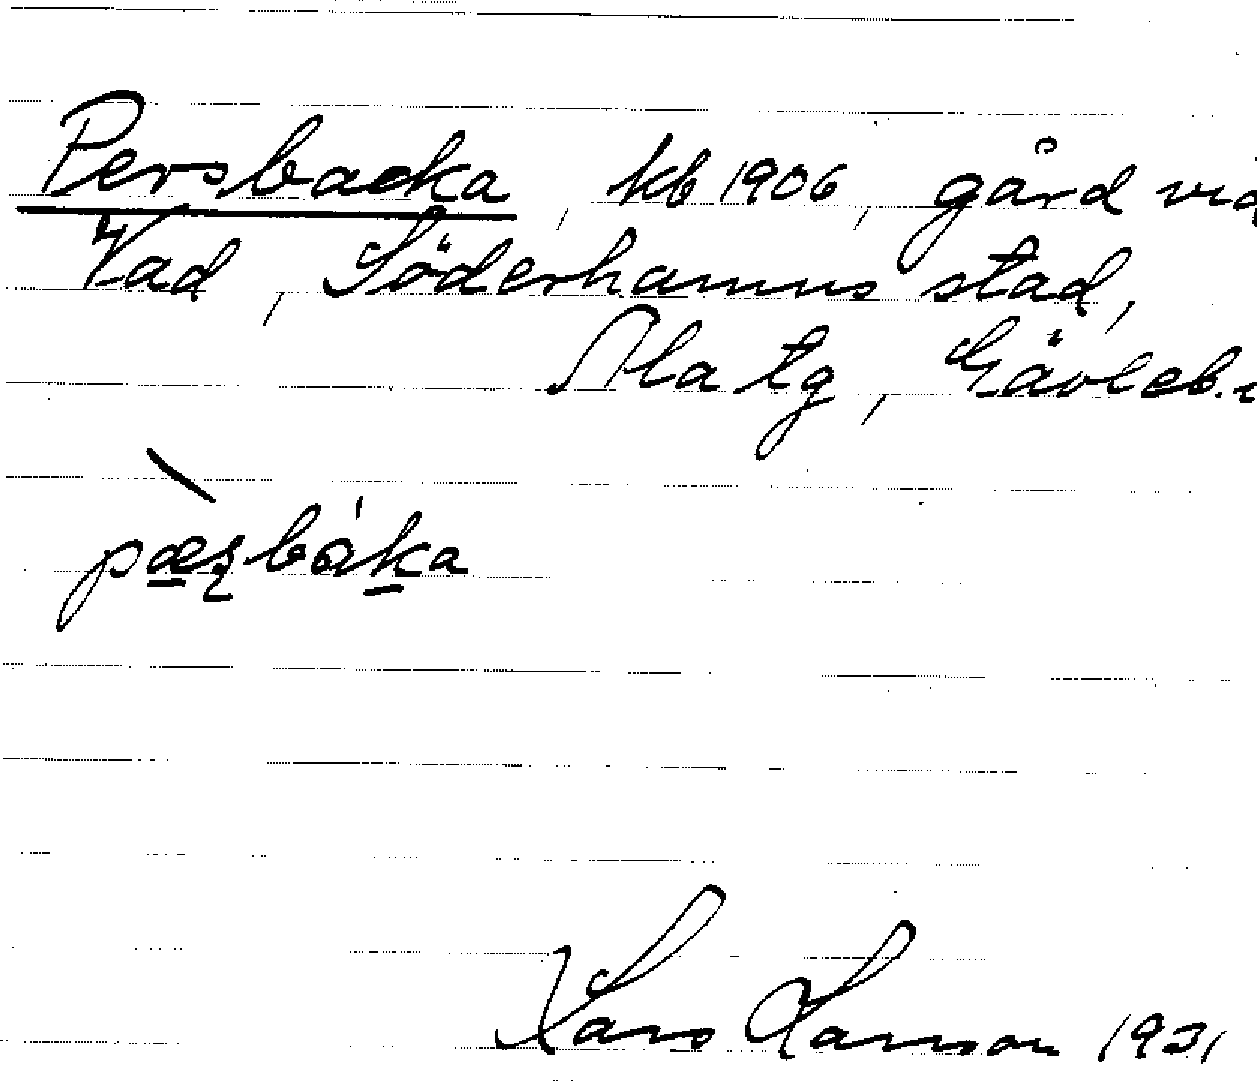 Persbacka, kb 1906, gård vid
Vad, Söderhamns stad,
Ala tg, Gävleb.
pæʂbáka
Lars Larsson 1931